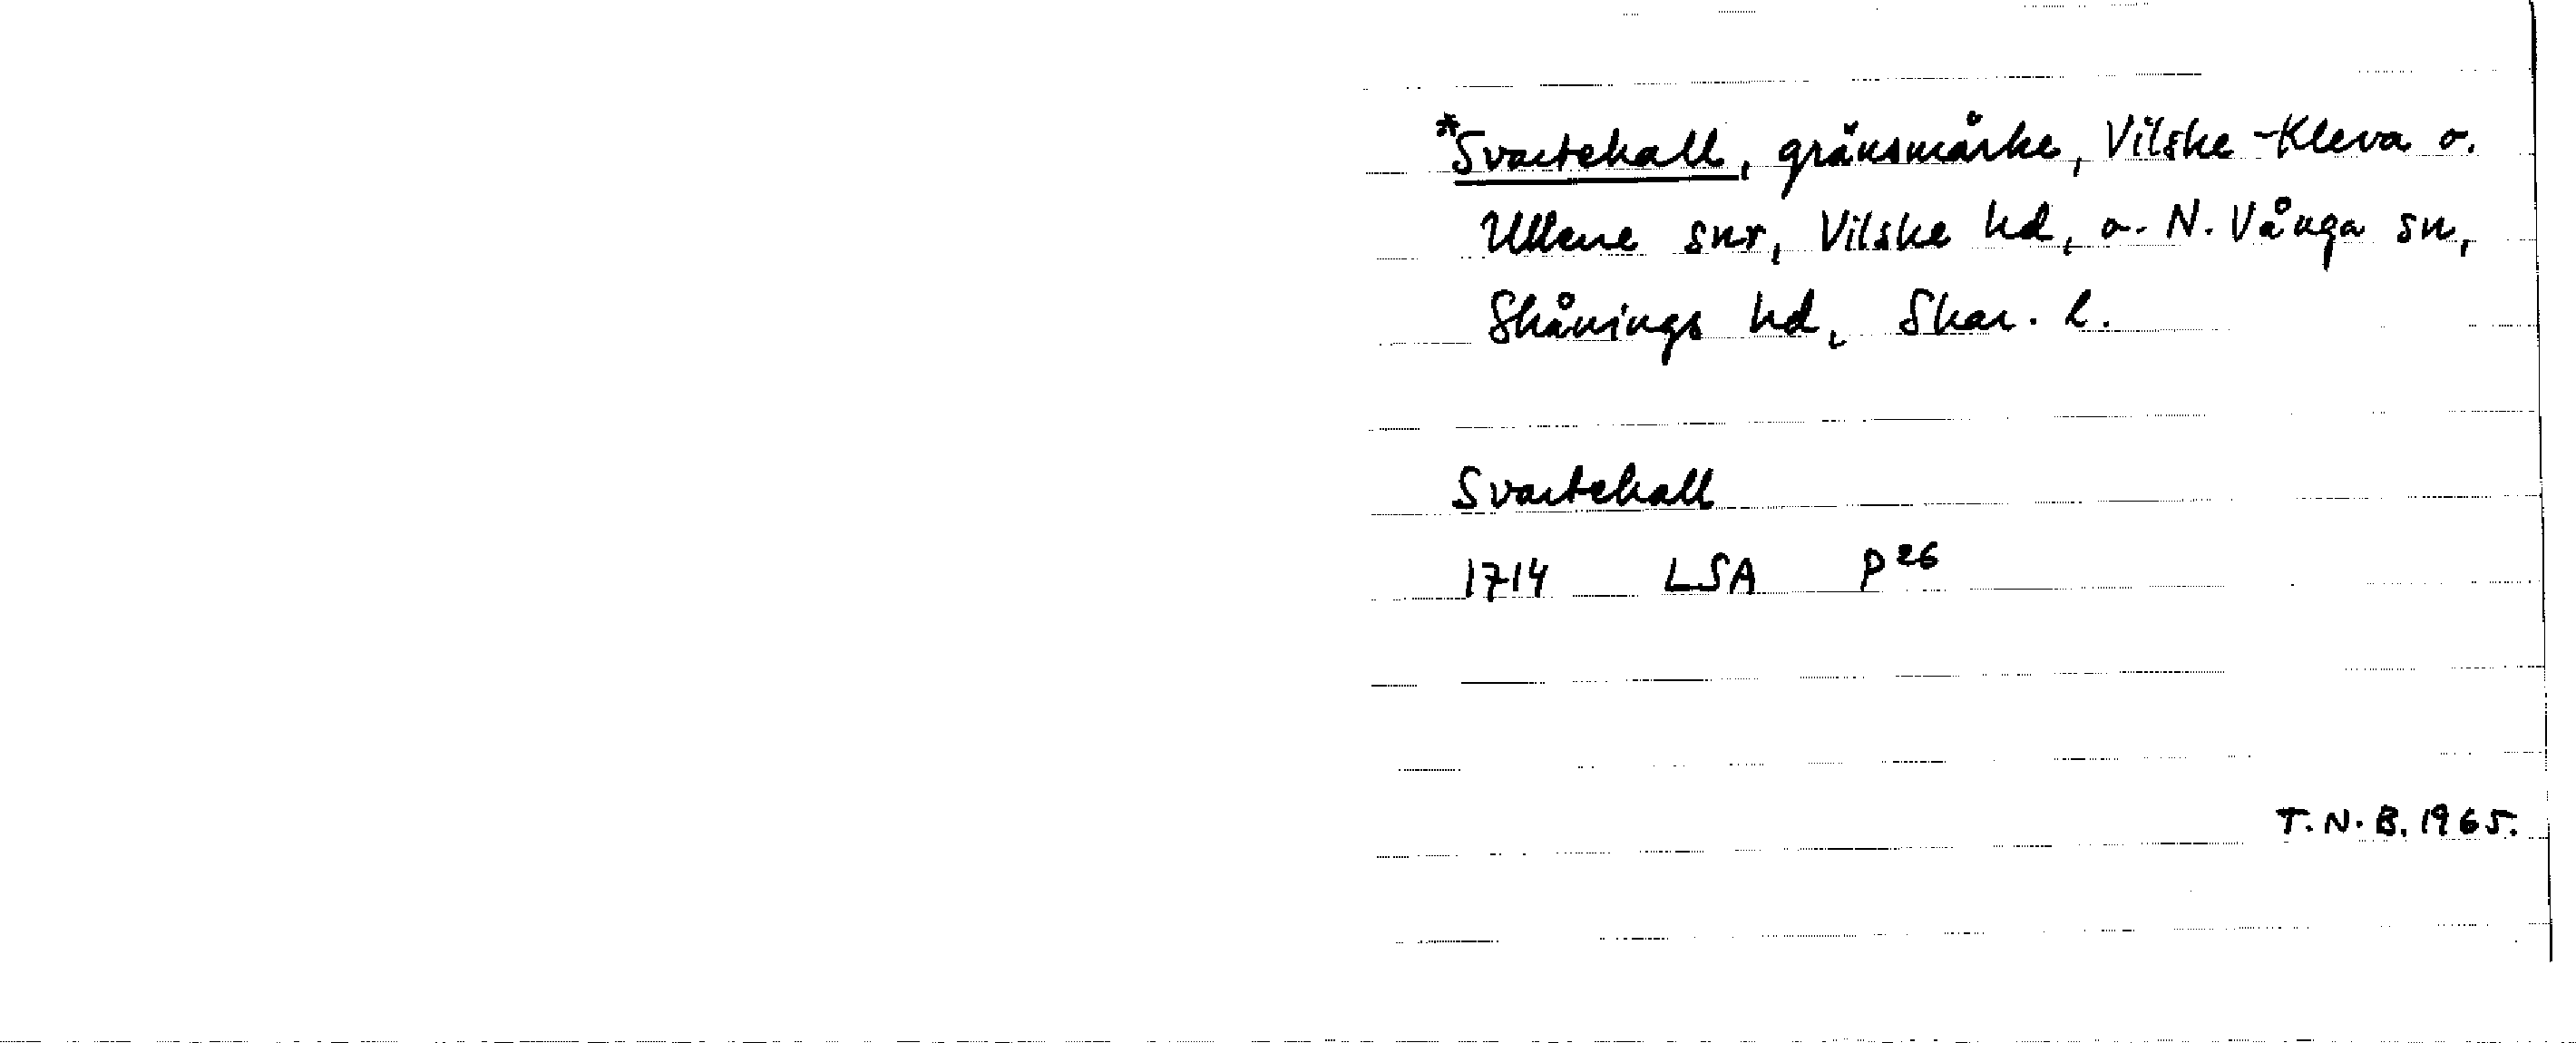 *Svartehall, gränsmärke, Vilske-Kleva o.
Ullene snr, Vilske hd, o. N. Vånga sn,
Skånings hd, Skar. l.
Svartehall
1714 LSA P26
T.N.B. 1965.